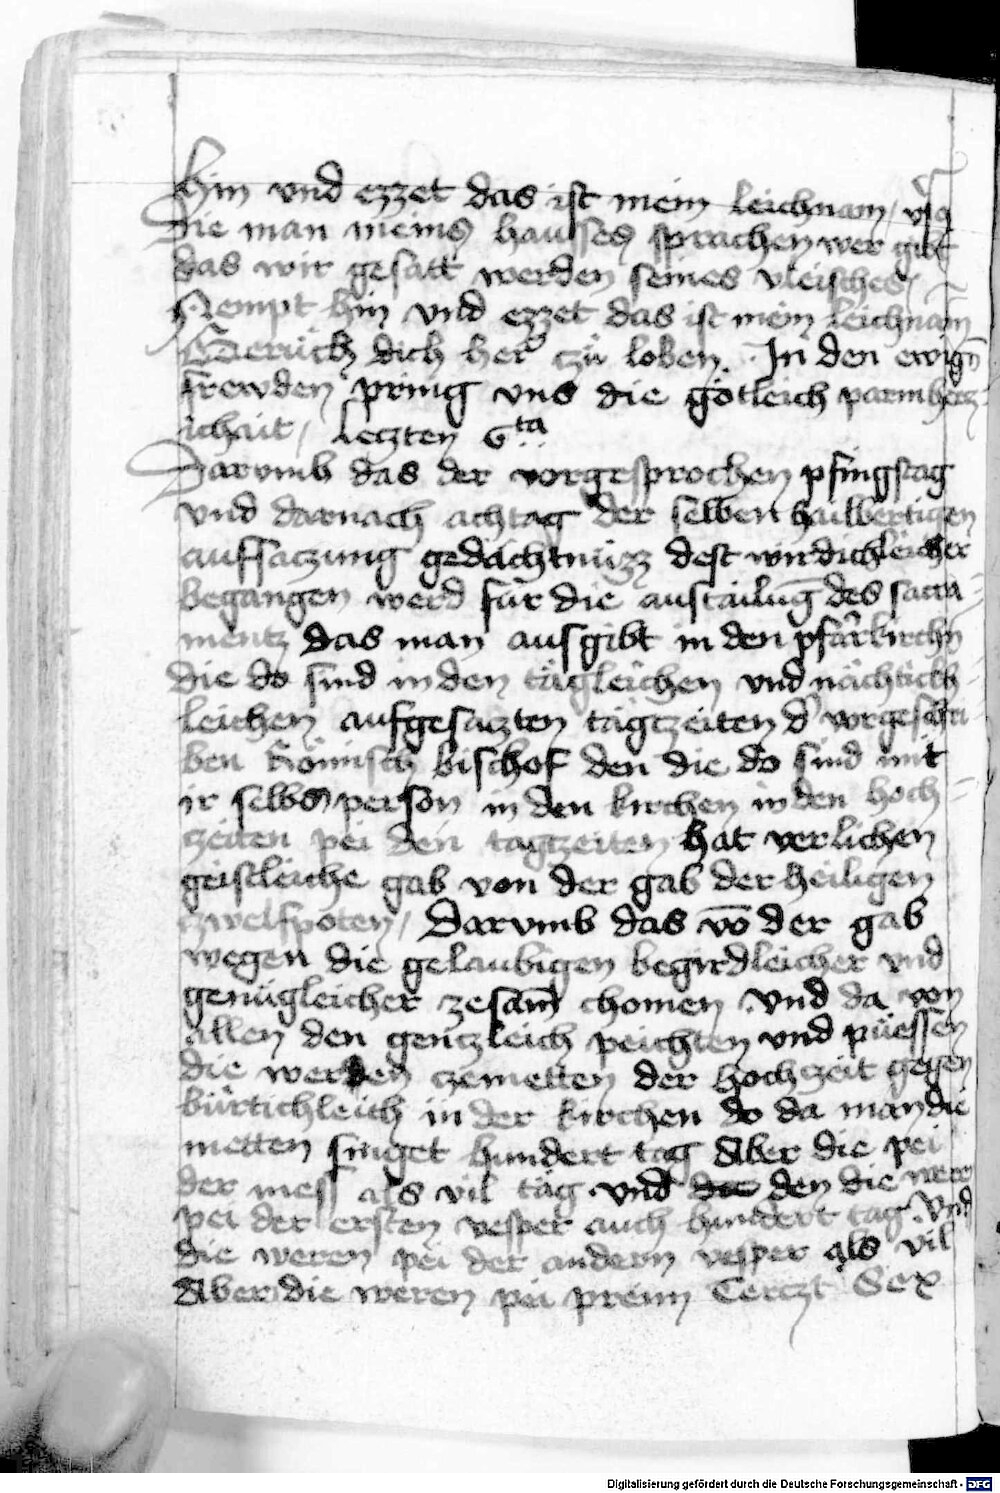 hin vnd ezzet das ist mein leichnam / vsq
Die man meins hausses sprachen wer gibt
das wir gesatt werden seines vleisches /
Nempt hin vnd ezzet das ist mein leichnam
Gerüch dich her czü loben. In den ewign̄
frewden pring vns die götleich parmhercz
ichait / leczten 6ta
Darvmb das der vorgesprochen pfingstag
vnd darnach achtag der selben hailbertigen
aufsaczung gedächtnüzz dest wirdichleicher
begangen werd für die austailūg des sacra
mentz das man ausgibt in den pfarkirchn
die do sind in den tägleichen vnd nächtich
leichen aufgesaczten tägczeiten d' vorgeschri
ben Römisch bischof den die do sind mit
ir selbs person in den kirchen in den hoch
czeiten pei den tagczeiten hat verlichen
geistleiche gab von der gab der heiligen
zwelfpoten / Darvmb das vō der gab
wegen die gelaubigen begirdleicher vnd
genügleicher zesam̄ chomen vnd da von
allen den gentzleich peichten vnd püessen
die werden czemetten der hochczeit gegen
bürtichleich in der kirchen do da man die
metten singet hundert tag Aber die pei
der mess als vil täg vnd den die weren
pei der ersten vesper auch hundert tag vnd
die weren pei der andern vesper als vil
Aber die weren pei preim Terczt Sex